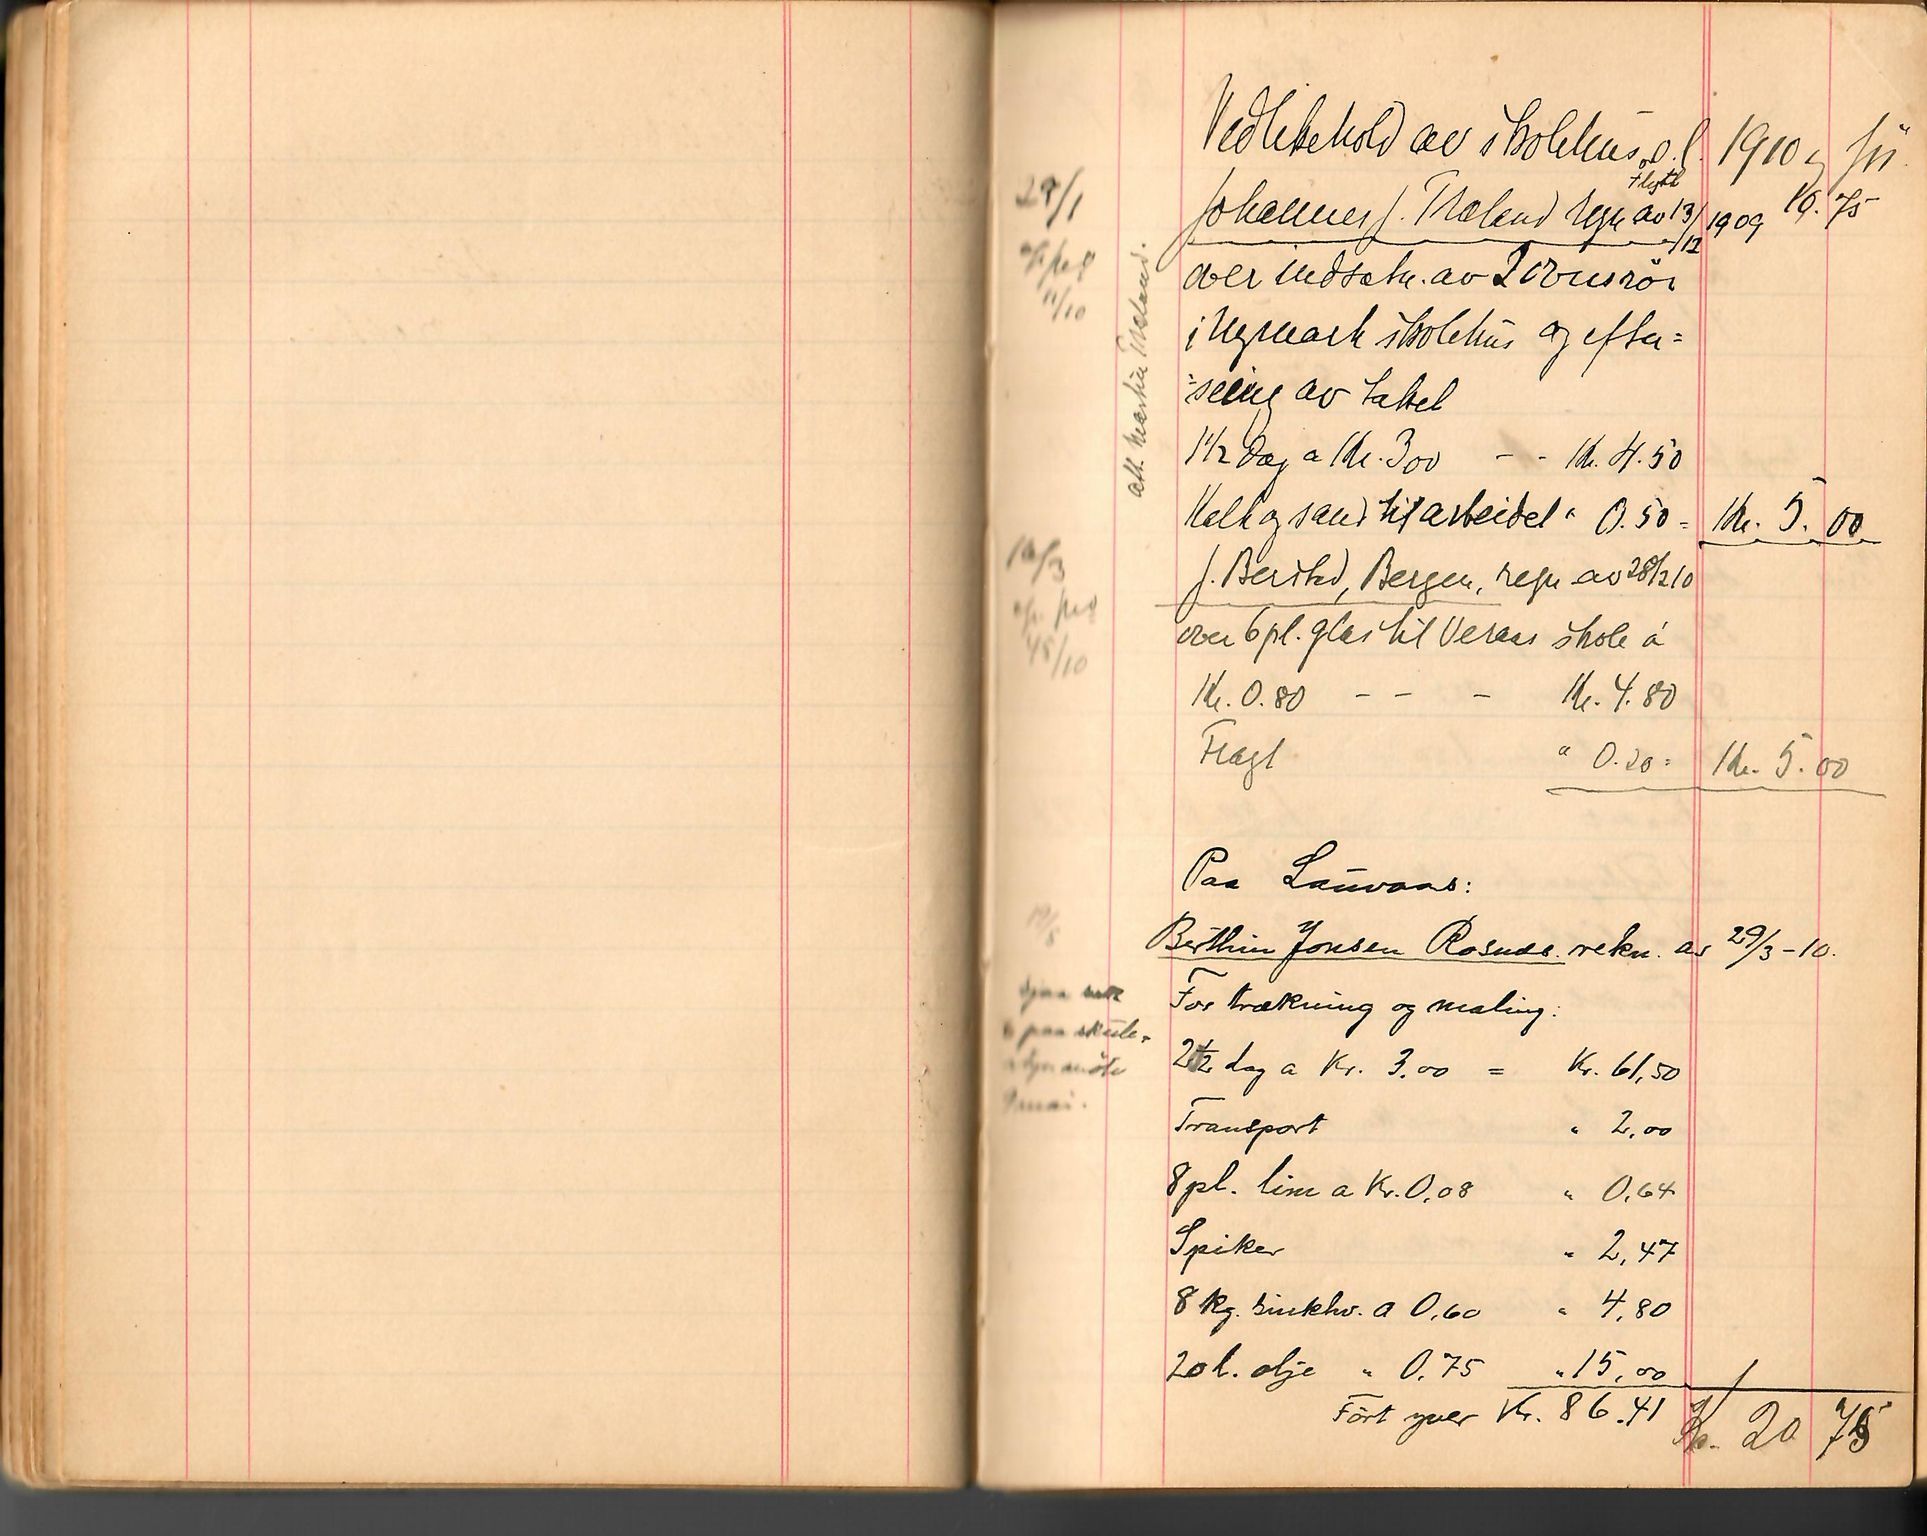 Vedlikehold av skolehus o.l. 1910 og
Flytt
Johannes J. Træland regn av 13/12 1909 10.75
over indsætn. av 2 ovnsrör
i Nymark skolehus og efter=
=seing av taket
1 1/2 dag a Kr. 3 00 - - Kr. 4.50
Kalk og sand til arbeidet " 0.50 = Kr. 5.00
J. Berstad, Bergen, regn av 28/2 10
over 6 pl. glas til Veraas skole á
Kr. 0.80 - - - Kr. 4.80
Fragt " 0.20 = Kr. 5.00
Paa Lauvaas:
Berthin Jonsen Rosnæs. rekn. av 29/3-10.
For trækning og maling:
dag a Kr. 3.00 = Kr. 61,50
Transport " 2,00
8 pl. lim a Kr. 0,08 " 0,64
Spiker " 2,47
8 kg. sinkhv. a 0,60 " 4,80
20 l. olje " 0,75 " 15,00
Fört yver Kr. 86.41 Kr. 20 75
29/1
11/10
att. Martin Træland.
16/3
45/10
19/5
paa skule-
9 mai.